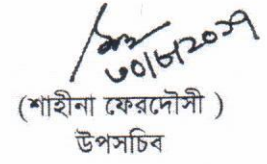 ৩০/৮/২০১৭
(শাহীনা ফেরদৌসী )
উপসচিব